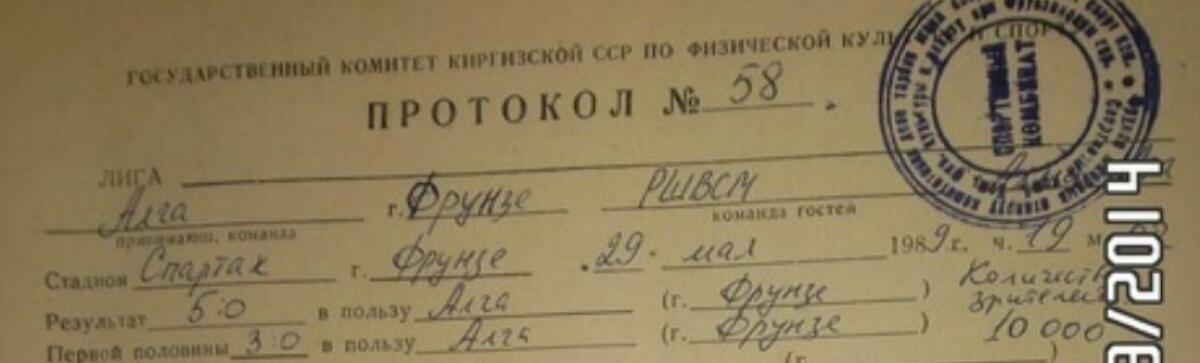 ГОСУДАРСТВЕННЫЙ КОМИТЕТ КИРГИЗСКОЙ ССР ПО ФИЗИЧЕСКОЙ И СПОР
ПРОТОКОЛ № 58
СПОРТИВНЫЙ
КОМБИНАТ
ЛИГА
Алга г. Фрунзе РШВСМ
принимающ. команда команда гостей
Стадион Спартак г. Фрунзе 29 мая 1989 г. ч. 19 м
Результат 5:0 в пользу Алга (г. Фрунзе) Количеств
зрителей
Первой половины 3:0 в пользу Алга (г. Фрунзе) 10 000
(г.
/2014